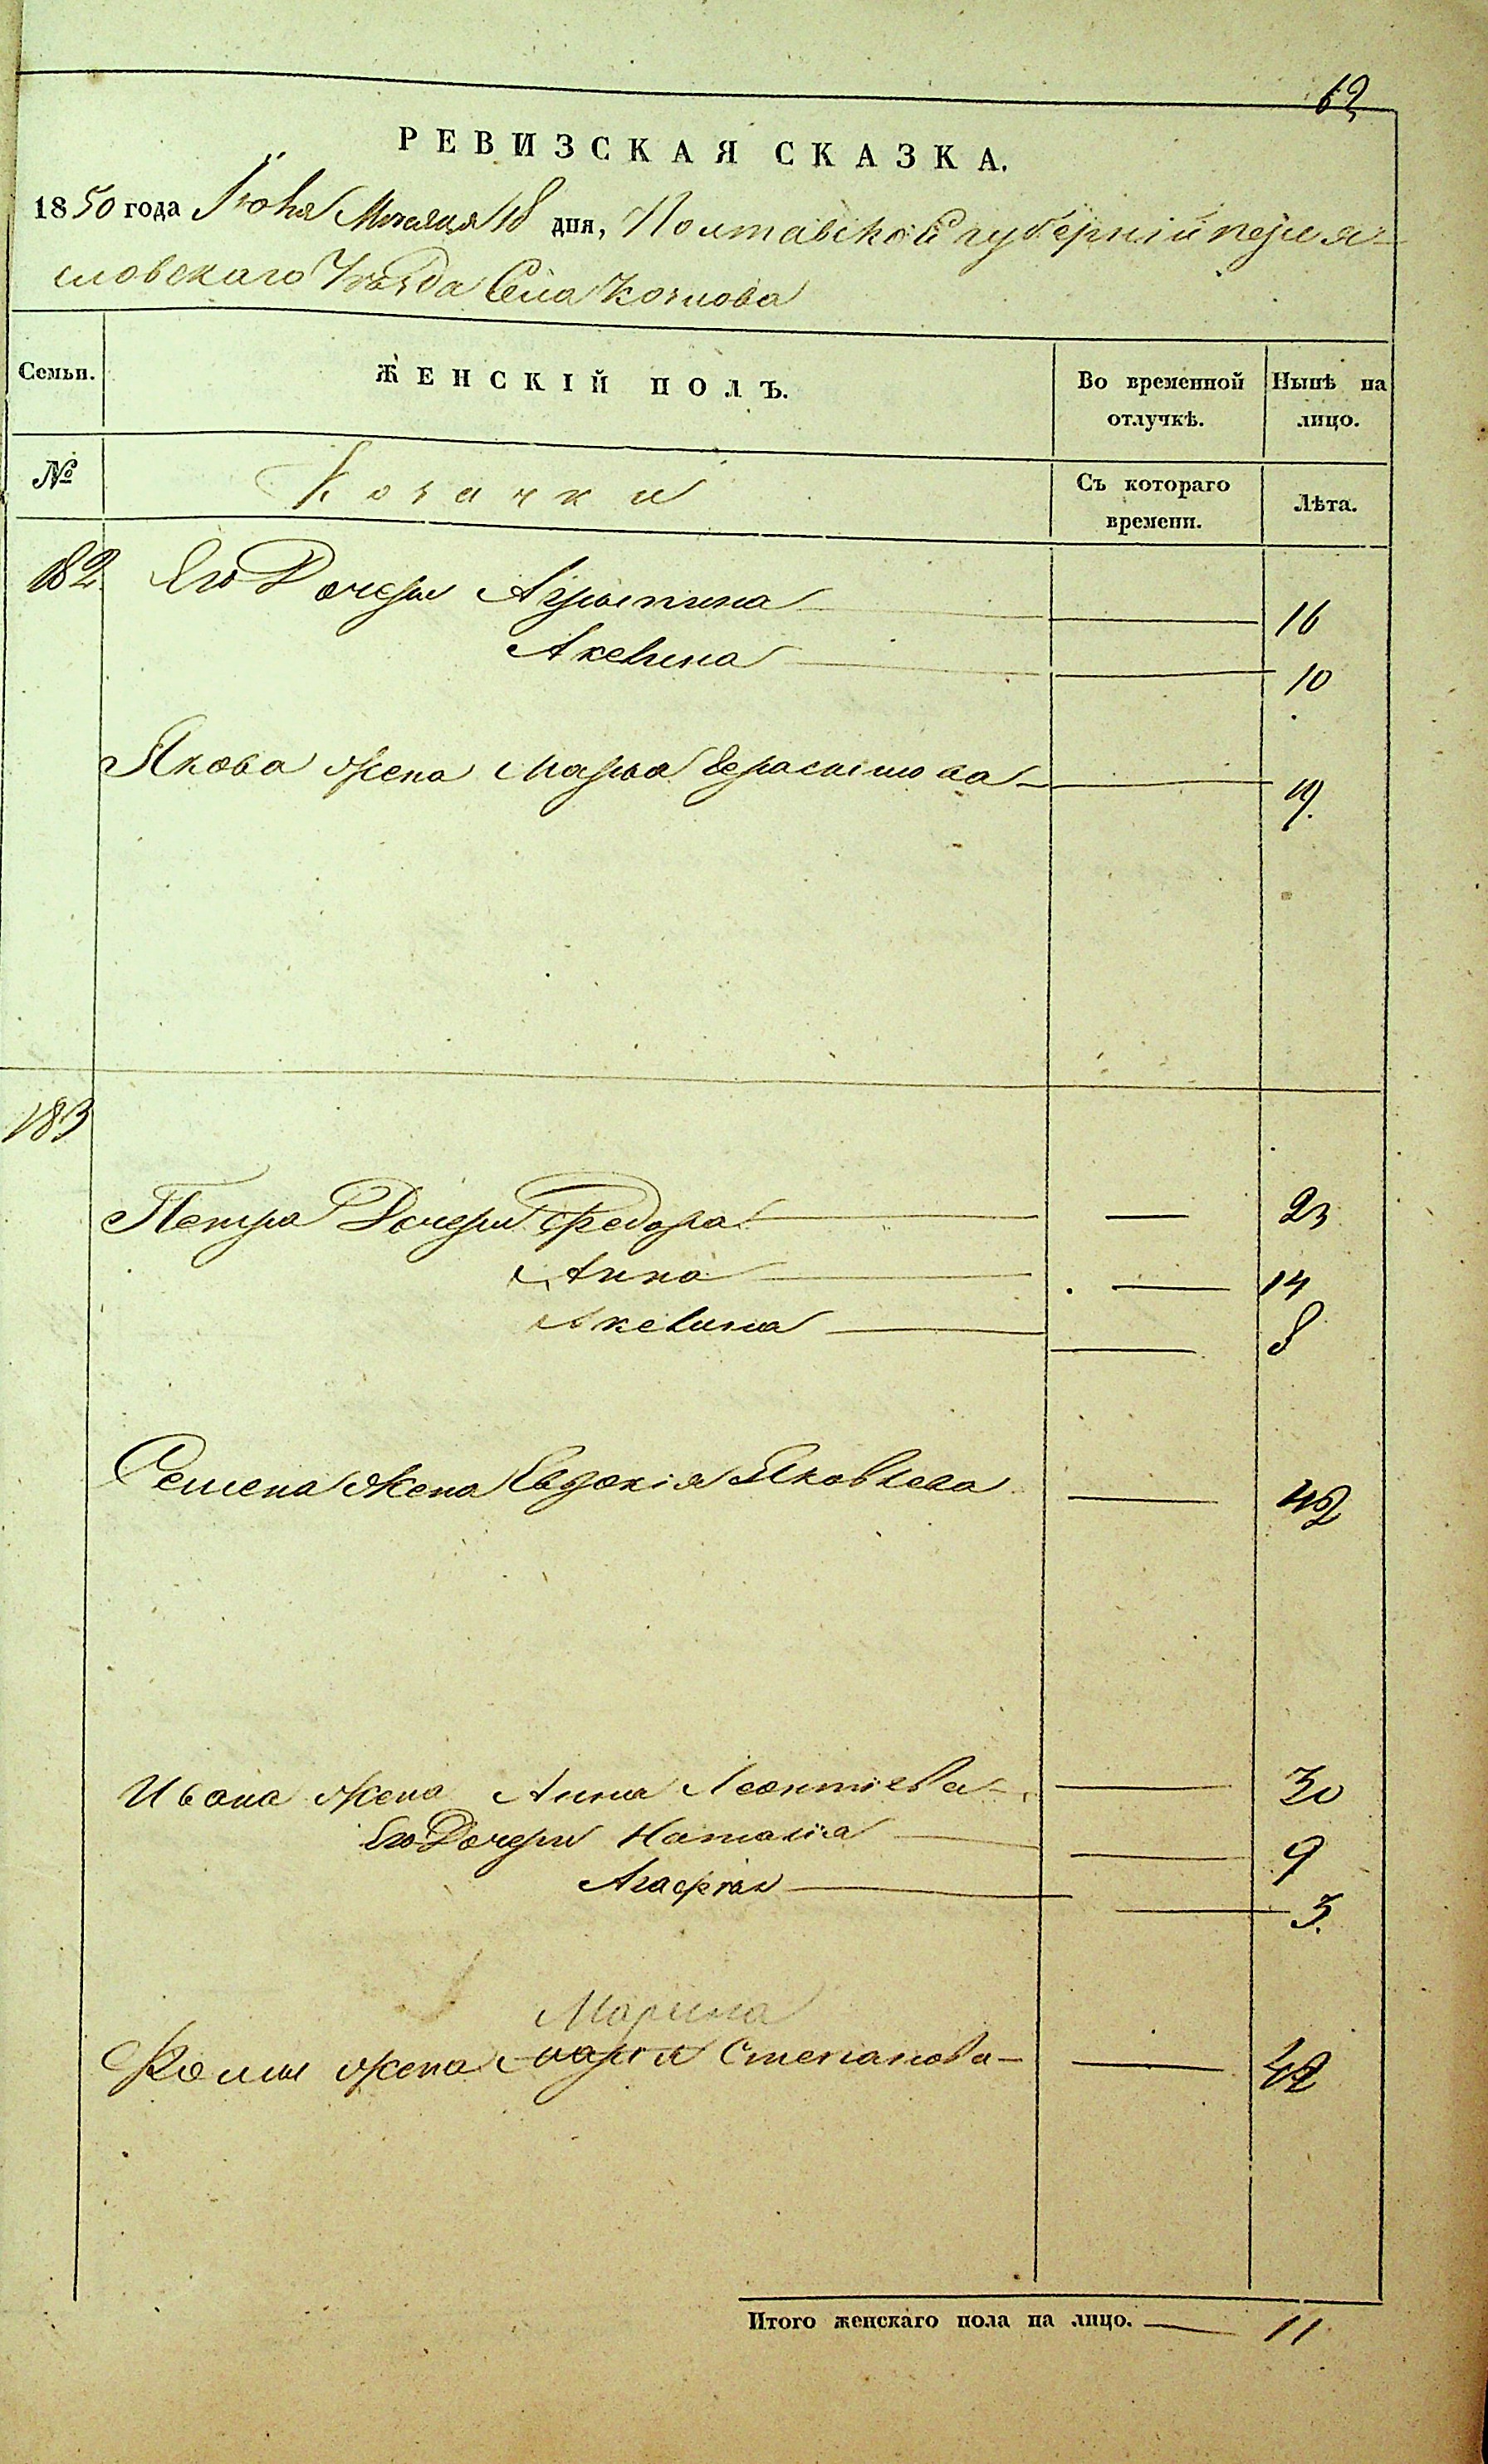 62
РЕВИЗСКАЯ СКАЗКА.
1850 года Іюня Месяца 18 дня, Полтавской губерніи перея-
словскаго Уѣзда Села Козлова
Семьи. ЖЕНСКІЙ ПОЛЪ. Во временной отлучкѣ. Нынѣ на лицо.
№ Козачки Съ котораго времени. Лѣта.
182 Его Дочери Агрипина 16
Акелина 10
Якова жена Марья Герасимова 19.
183
Петра Дочери Федора 23
Анна 14
Акелина 8
Семена жена Евдокія Яковлева 42
Ивана жена Анна Леонтіева 30
Его Дочери Наталія 9
Агафія 3.
Марина
Фомы жена Марія Степанова 42
Итого женскаго пола на лицо. 11